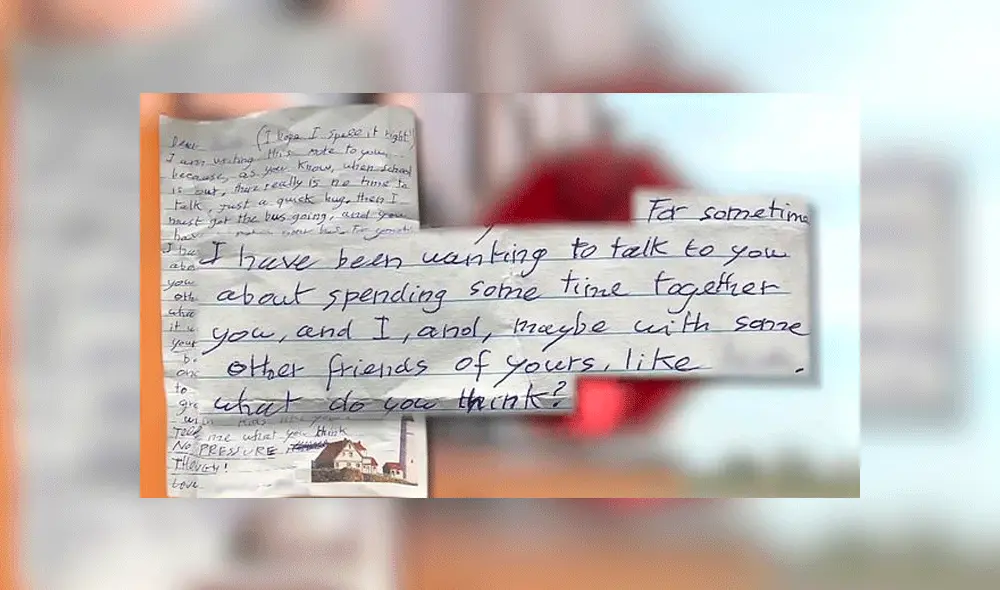 Dear (I hope I spell it right!)
I am writing this note to you
because, as you know, when school
is out, there really is no time to
talk, just a quick hug, then I
must get the bus going, and you
have
For sometime
I have been wanting to talk to you
about spending some time together
you, and I, and, maybe with some
other friends of yours, like
what do you think?
I ha
abo
you
oth
wha
it
your
b
one
to
gre
with kids like you
Tell me what you think
No PRESSURE
THOUGH!
Love